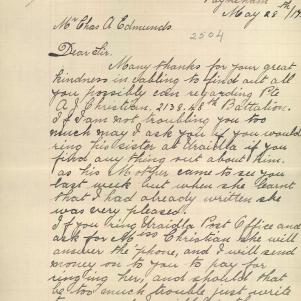 Payneham
May 28th/19
Mr Chas A Edmunds.
2504
Dear Sir.
Many thanks for your great
kindness in cabling to find out all
you possibly can regarding Pte
A J Christian. 2138. 48th Battalion.
If I am not troubling you too
much may I ask you if you would
ring his sister at Uraidla if you
find any thing out about him.
as his Mother came to see you
last week but when she learnt
that I had already written she
was very pleased.
If you ring Uraidla Post Office and
ask for Miss Christian she will
answer the phone, and I will send
money on to you to pay for
ringing her, and should that
be too much trouble just write